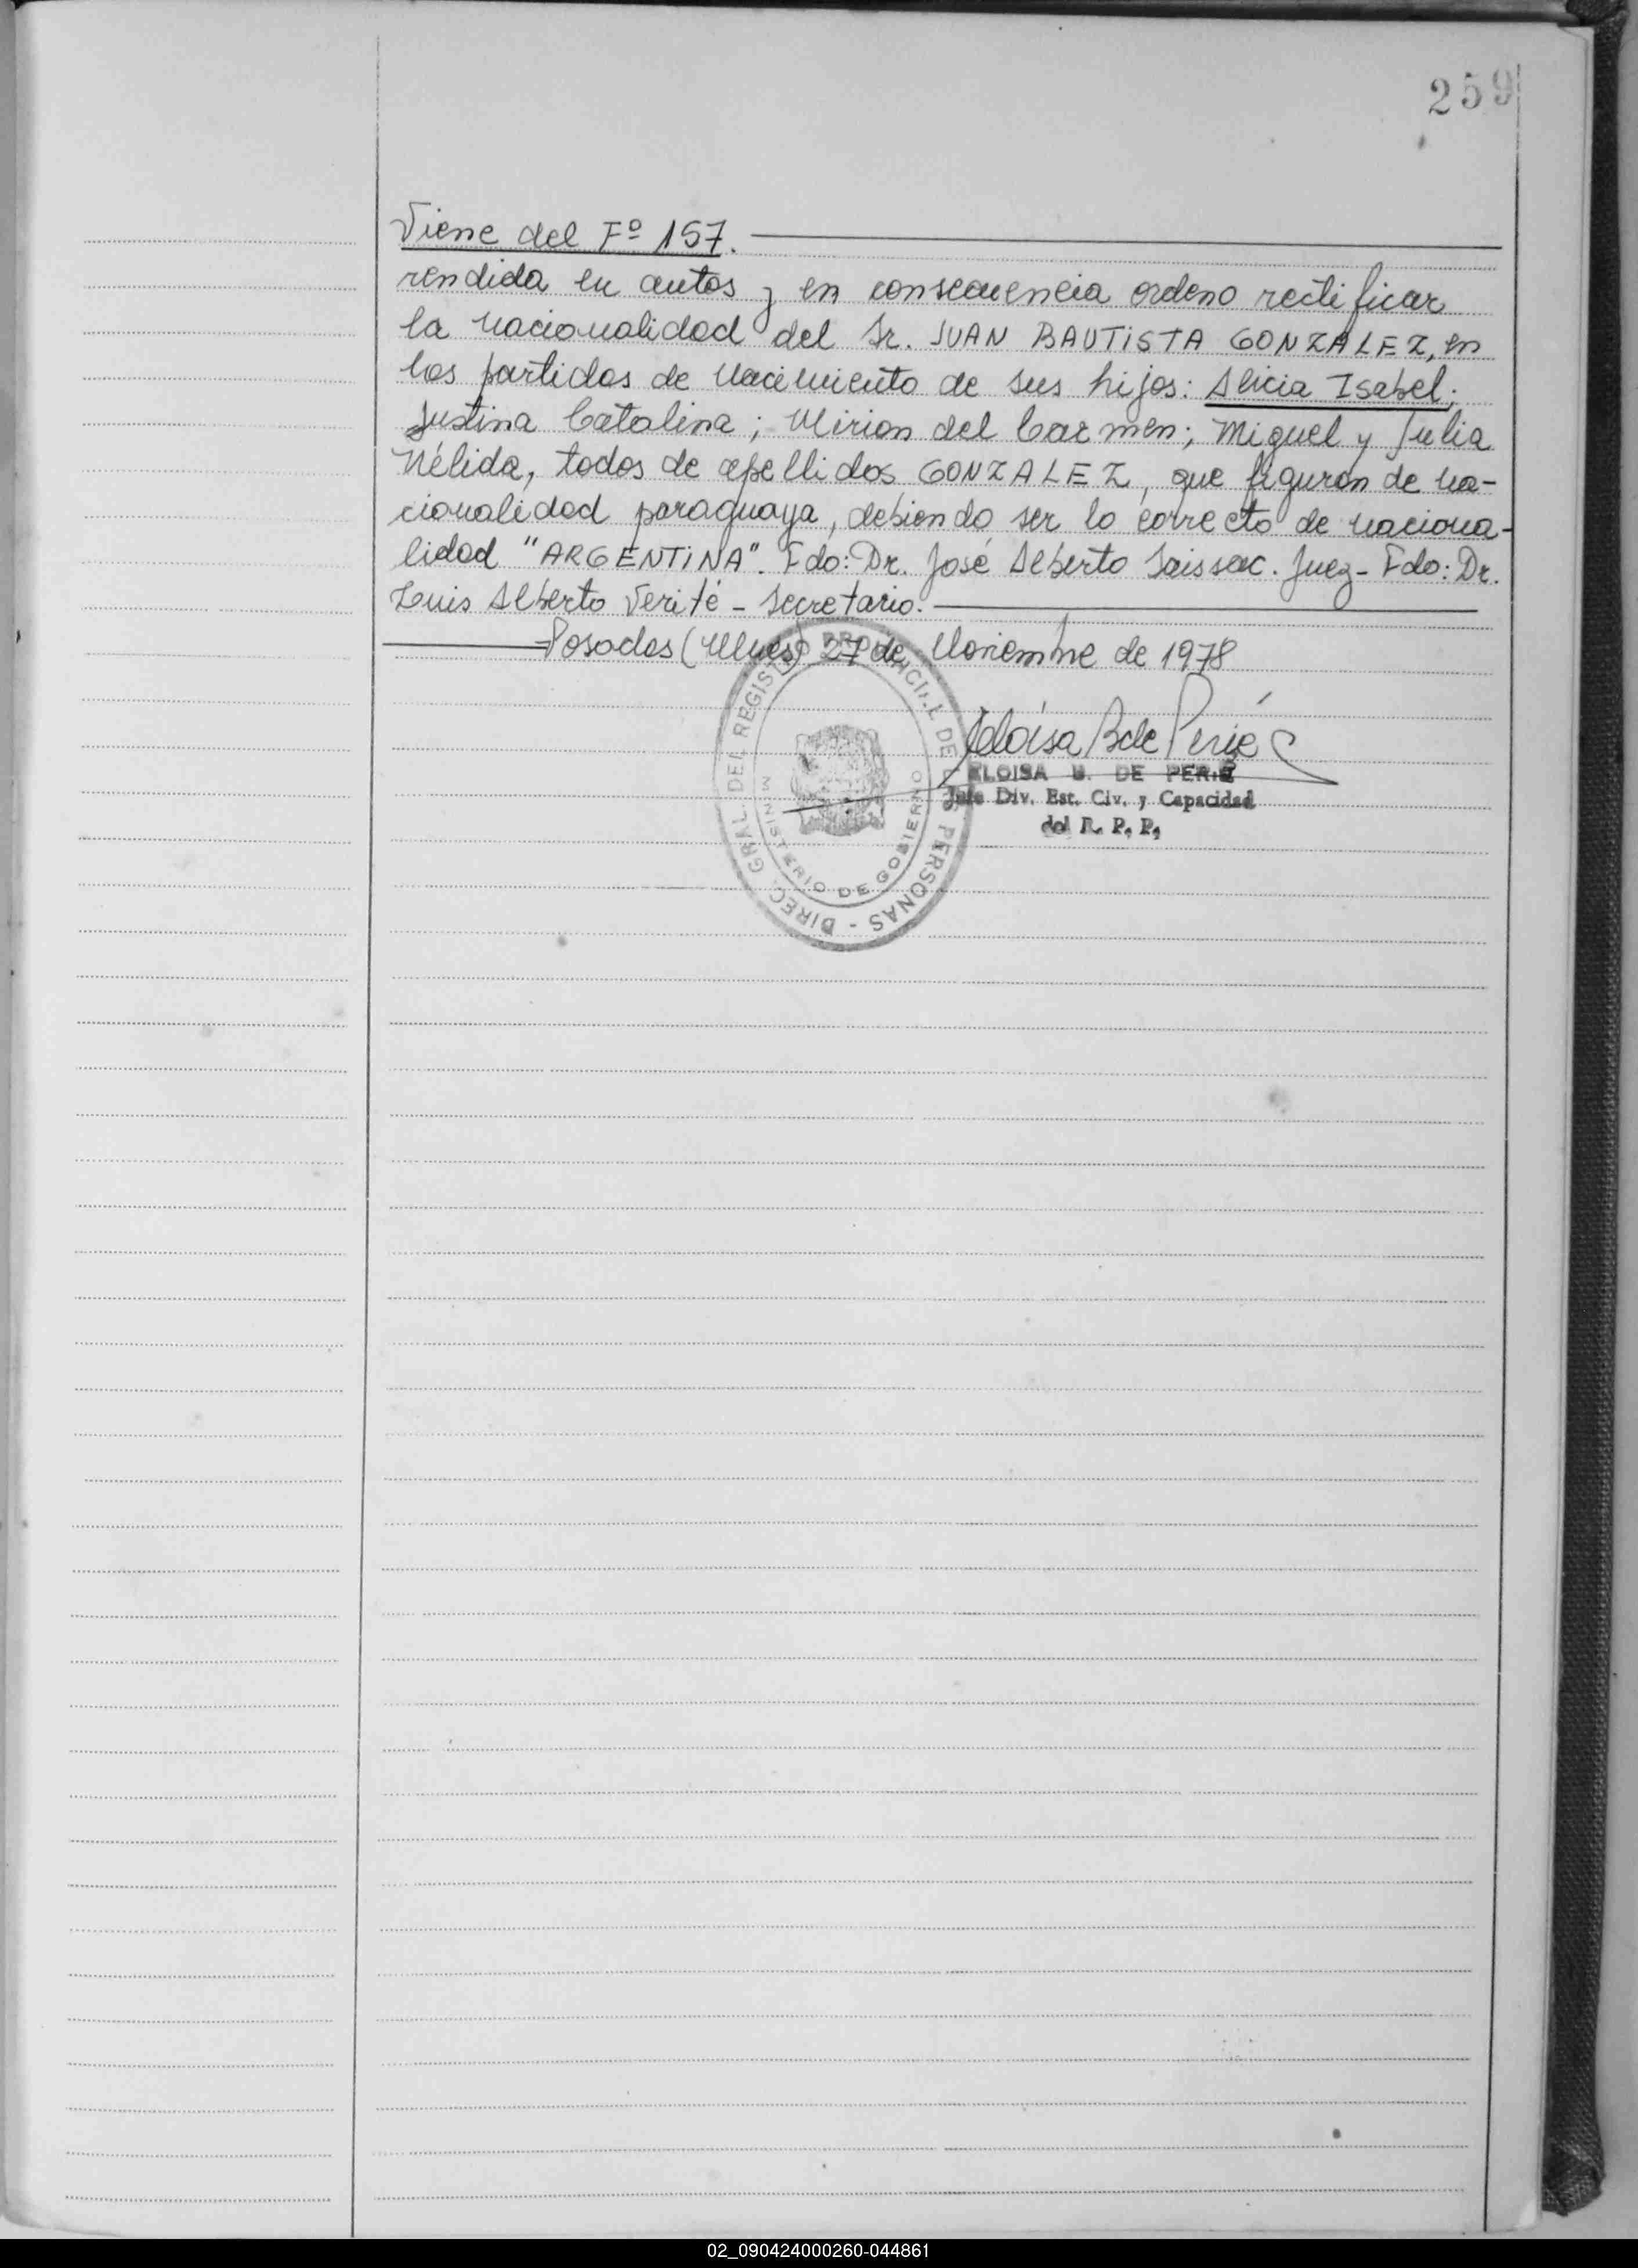 259
Viene del Fº 157.
rendida en autos y en consecuencia ordeno rectificar
la nacionalidad del Sr. JUAN BAUTISTA GONZALEZ, en
las partidas de nacimiento de sus hijos: Alicia Isabel;
Justina Catalina; Mirian del Carmen; Miguel y Julia
Nélida, todos de apellidos GONZALEZ, que figuran de na-
cionalidad paraguaya, debiendo ser lo correcto de naciona-
lidad "ARGENTINA". Fdo: Dr. José Alberto Saissac. Juez- Fdo: Dr.
Luis Alberto Verité - Secretario.
Posadas (Mnes) 27 de Noviembre de 1978
Eloísa B de Perié
ELOISA B. DE PERIE
Jefe Div. Est. Civ. y Capacidad
del R. P. P.
DIREC. GRAL DEL REGISTRO PROVINCIAL DE LAS PERSONAS -
MINISTERIO DE GOBIERNO
02_090424000260-044861